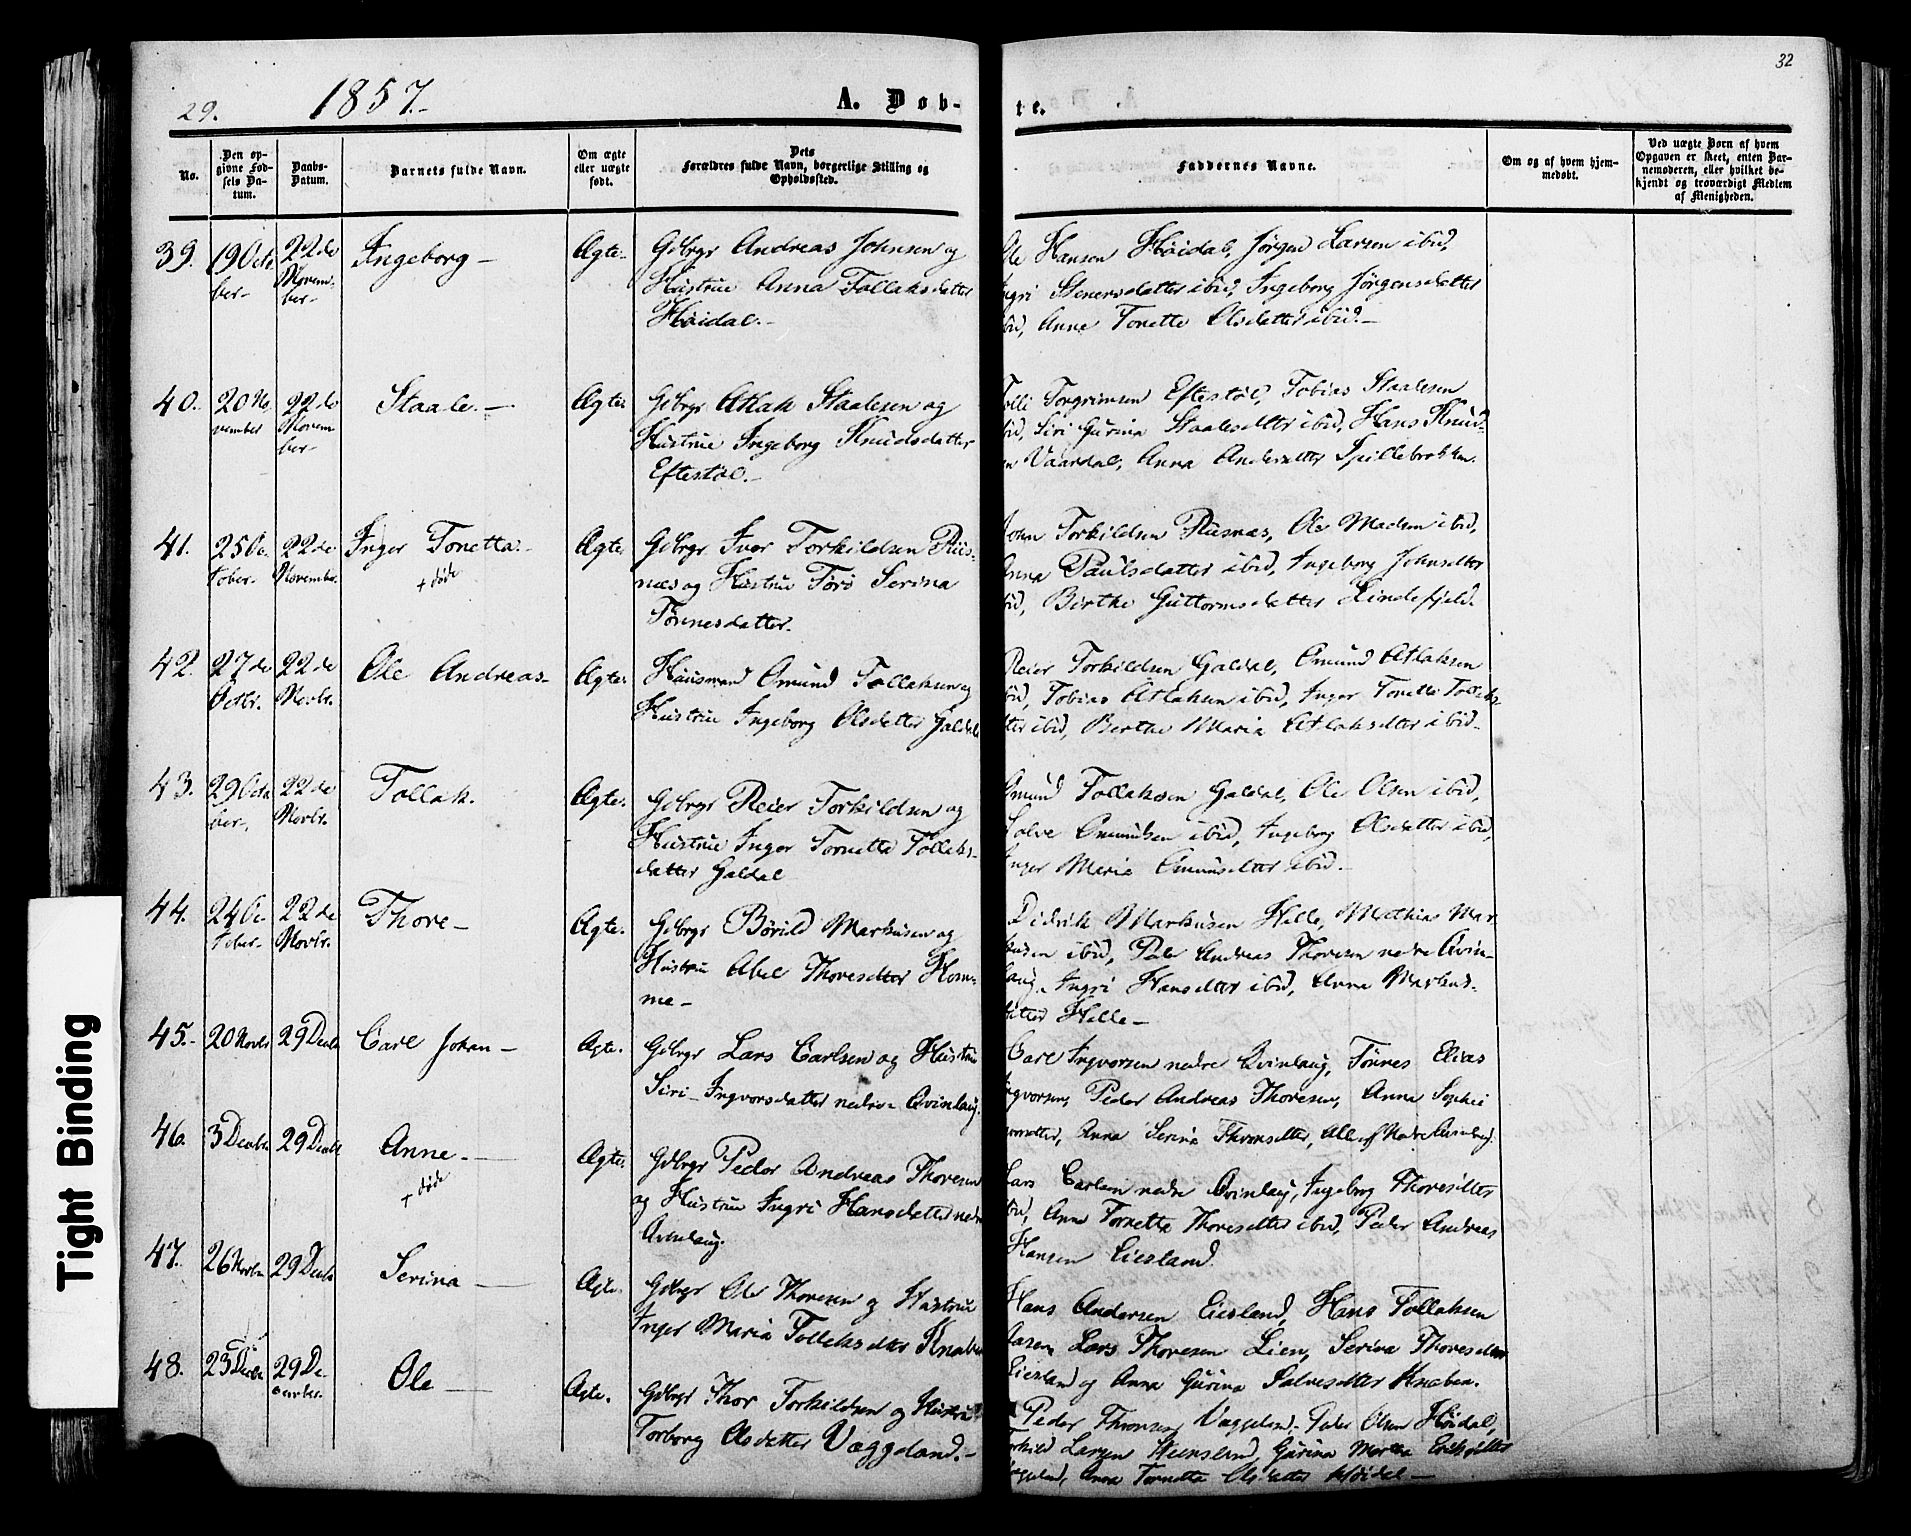 32
29.
1857.-
A. Døb-
te.
No.
Den op-
givne Fød-
sels Da-
tum.
Daabs-
Datum.
Barnets fulde Navn.
Om ægte
eller uægte
født.
Dets
Forældres fulde Navn, borgerlige Stilling og
Opholdssted.
Faddernes Navne.
Om og af hvem hjem-
medøbt.
Ved uægte Børn af hvem
Opgaven er skeet, enten Bar-
nemoderen, eller hvilket be-
kjendt og troværdigt Medlem
af Menigheden.
39. 19 Octo
ber-
22de
Novem-
ber-
Ingeborg-
Ægte.
Gdbrgr Andreas Johnsen og
Hustrue Anna Tollaksdatter
Høidal.-
Ole Hansen Høidal, Jørgen Larsen ibid,
Ingri Stenersdatter ibid, Ingeborg Jørgensdatter
ibid, Anne Tonette Olsdatter ibid.-
40. 20 No
vember
22de
Novem
ber-
Staale.-
Ægte.
Gdbrgr Atlak Staalesen og
Hustrue Ingeborg Knudsdatter
Eftestøl.-
Tolli Torgrimsen Eftestøl, Tobias Staalesen
ibid, Siri Gurina Staalesdtter ibid, Hans Knud-
sen Vaardal, Anna Andersdtter Spillebrokken.
41. 25 Oc
tober.
22de
November.
Inger Tonetta.-
+ døde
Ægte
Gdbrgr Iver Torkildsen Riis-
næs og Hustrue Torø Serina
Tønnesdatter.
Torkildsen Riisnæs, Ole Madsen ibid,
Anna Paulsdatter ibid, Ingeborg Johnsdtter
ibid, Birthe Guttormsdatter Lindefjeld.
42. 27de
Octbr.
22de
Novbr.
Ole Andreas-
Ægte.
Huusmand Omund Tollaksen og
Hustrue Ingeborg Olsdatter Galdal
Reier Torkildsen Galdal, Omund Atlaksen
ibid, Tobias Atlaksen ibid, Inger Tonette Tollaks-
dtter ibid, Berthe Maria Atlaksdtter ibid-
43. 29 Octo
ber.
22de
Novbr.
Tollak.
Ægte.
Gdbrgr Reier Torkildsen og
Hustrue Inger Tornette Tollaks-
datter Galdal
Omund Tollaksen Galdal, Ole Olsen ibid,
Solve Omundsen ibid, Ingeborg Olsdatter ibid,
Inger Maria Omundsdtter ibid.-
44. 24 Oc
tober-
22de
Novbr.
Thore-
Ægte.
Gdbrgr Børild Markusen og
Hustru Abel Thoresdtter Hom-
me-
Didrik Markusen Helle, Mathias Mar
kusen ibid, Peder Andreas Thoresen nedre Qvin-
laug, Ingri Hansdtter ibid, Anna Markus-
datter Helle-
45.- 20 Novbr
29 Decbr
Carl Johan-
Ægte.
Gdbrgr Lars Carlsen og Hustrue
Siri Ingvorsdatter nedre Qvinlaug.
Carl Ingvorsen nedre Qvinlaug, Tønnes Elias
Ingvorsen, Peder Andreas Thoresen, Anna Sophie
Anna Serina Thoresdtter, Alle af Nedre Qvinlaug.
46. 3 Decbr
29 Decbr
Anne.-
+ døde
Ægte.
Gdbrgr Peder Andreas Thoresen
og Hustrue Ingri Hansdatter nedre
Qvinlaug.
Lars Carlsen nedre Qvinlaug, Ingeborg Thoresdtter
ibid, Anne Tornetta Thoresdtter ibid, Peder Andreas
Hansen Eiesland.
47. 26 Novbr
29 Decbr
Serina-
Ægte.
Gdbrgr Ole Thoresen og Hustrue
Inger Maria Tollaksdtter Knaben
Hans Andersen Eiesland, Hans Tollaksen
Lars Thoresen Lien, Serina Thoresdtter
Eiesland og Anna Gurina Salvesdtter Knaben.
48. 23 Decbr
29 De
cember.
Ole-
Ægte.
Gdbrgr Thor Torkildsen og Hustrue
Torborg Olsdatter Væggeland.-
Peder Olsen Høidal,
Torkild Larsen Gurina
Anna Tornetta Olsdatter Høidal-
Tight Binding